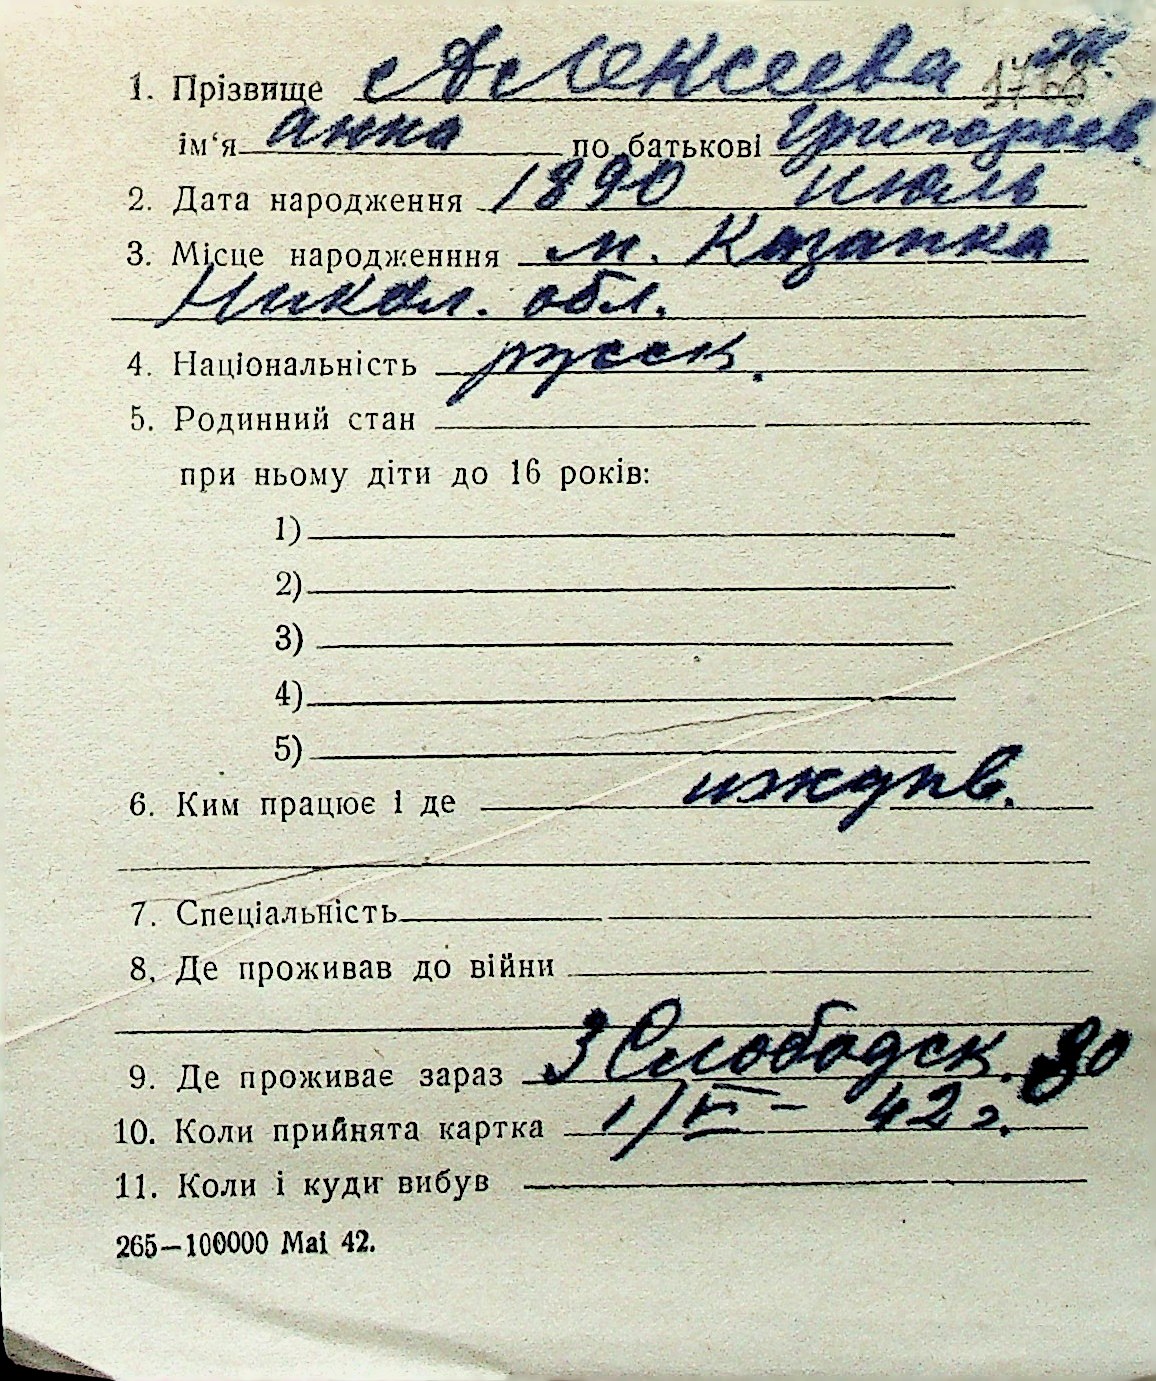 1. Прізвище Алексеева
ім‘я Анна по батькові Григорьев.
2. Дата народження 1890 июль
3. Місце народженння м. Казанка
Никол. обл.
4. Національність русск.
5. Родинний стан
при ньому діти до 16 років:
1)
2)
3)
4)
5)
6. Ким працює і де иждив.
7. Спеціальність
8. Де проживав до війни
9. Де проживає зараз 3 Слободск. 80
10. Коли прийнята картка 42 г.
11. Коли і куди вибув
265—100000 Маі 42.